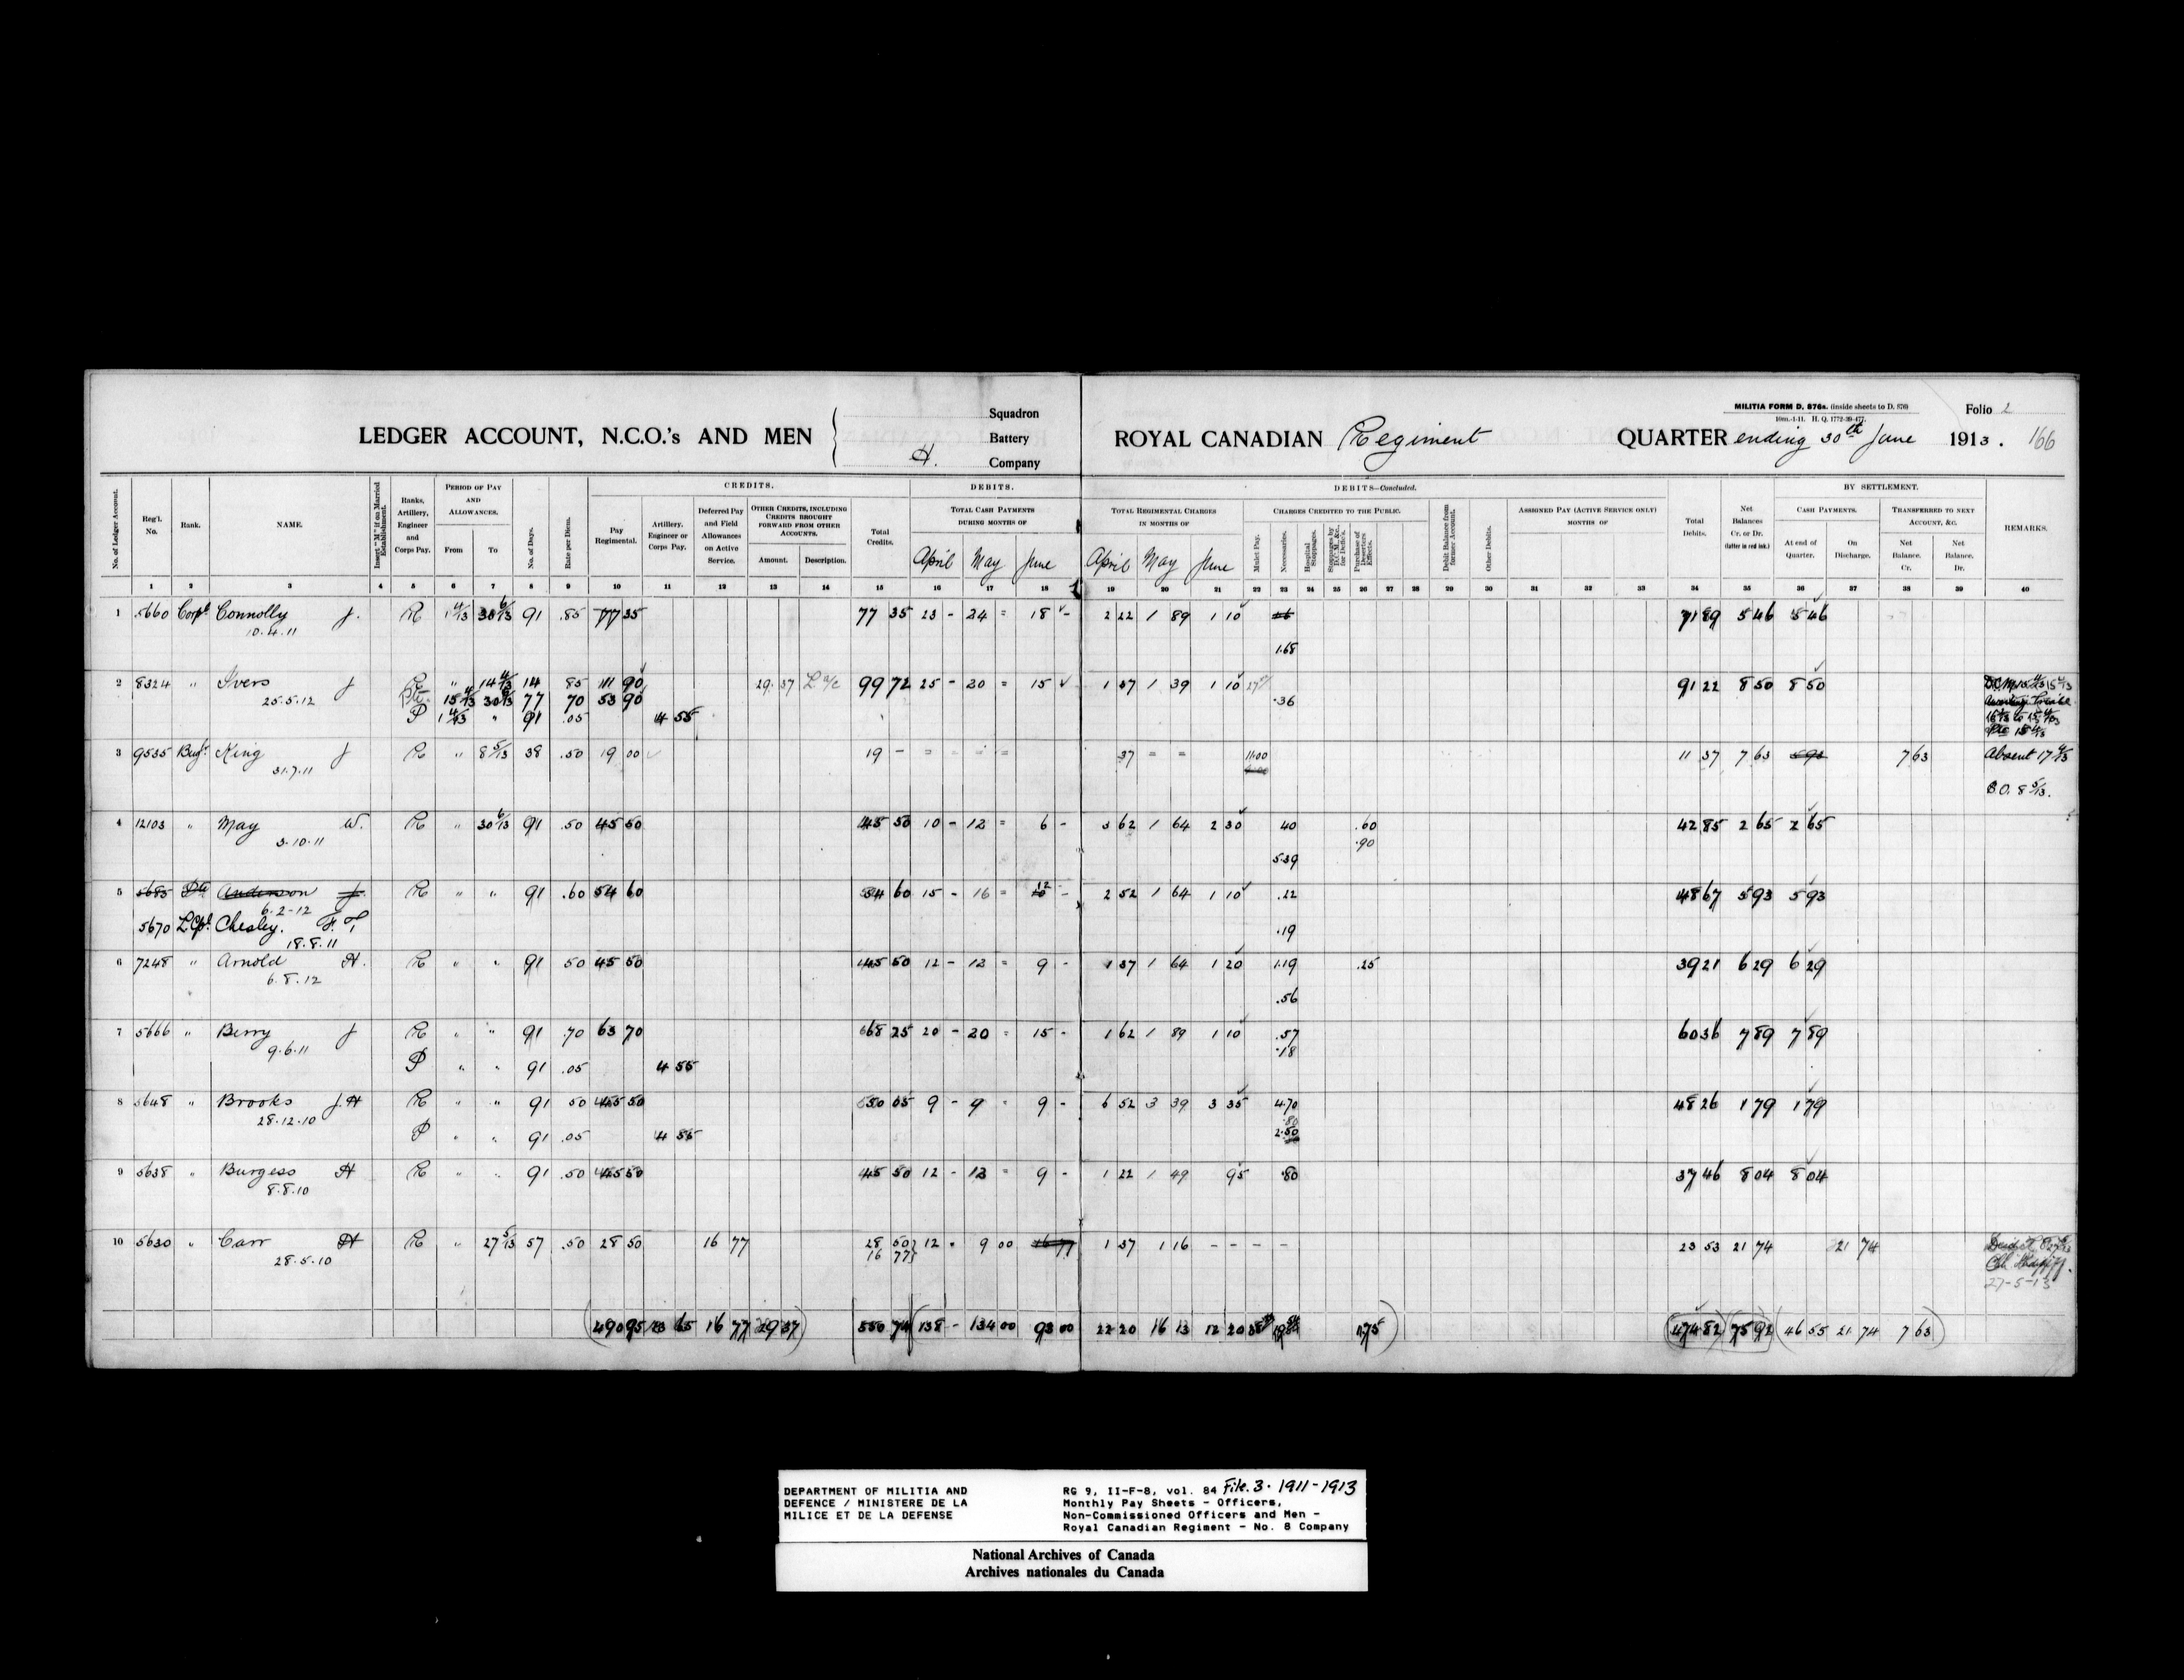 MILITIA FORM D. 876a. (inside sheets to D. 876)
10m.-1-11. H. Q. 1772-39-477.
Folio 2
166
LEDGER ACCOUNT, N.C.O.'s AND MEN
Squadron
Battery
H. Company
ROYAL CANADIAN Regiment
QUARTER ending 30th June 1913.
CREDITS. DEBITS. DEBITS—Concluded. BY SETTLEMENT.
No. of Ledger Account. Reg'l. No. Rank. NAME. Insert "M" if on Married Establishment. Ranks, Artillery, Engineer and Corps Pay. PERIOD OF PAY AND ALLOWANCES. From To No. of Days. Rate per Diem. Pay Regimental. Artillery, Engineer or Corps Pay. Deferred Pay and Field Allowances on Active Service. OTHER CREDITS, INCLUDING CREDITS BROUGHT FORWARD FROM OTHER ACCOUNTS. Amount. Description. Total Credits.
TOTAL CASH PAYMENTS DURING MONTHS OF April May June
TOTAL REGIMENTAL CHARGES IN MONTHS OF April May June
CHARGES CREDITED TO THE PUBLIC. Mulct Pay. Necessaries. Hospital Stoppages. Stoppages by D.C.M. &c., for Deftc's. Purchase of Deserters Effects. Debit Balance from former Account. Other Debits.
ASSIGNED PAY (ACTIVE SERVICE ONLY) MONTHS OF
Total Debits. Net Balances Cr. or Dr. (latter in red ink.) CASH PAYMENTS. At end of Quarter. On Discharge. TRANSFERRED TO NEXT ACCOUNT, &c. Net Balance. Cr. Net Balance. Dr. REMARKS.
1 2 3 4 5 6 7 8 9 10 11 12 13 14 15 16 17 18 19 20 21 22 23 24 25 26 27 28 29 30 31 32 33 34 35 36 37 38 39 40
1 5660 Corpl. Connolly J. R 1 4/13 30 6/13 91 .85 77 35 77 35 23 - 24 = 18 - 2 22 1 89 1 10 71 89 5 46 5 46
10.4.11
1.68
2 8324 " Ivers J R " 14 4/13 14 85 11 90 29.37 L a/c 99 72 25 - 20 = 15 1 37 1 39 1 10 91 22 8 50 8 50
25.5.12 Pte. 15 4/13 30 6/13 77 70 53 90 .36
P 1 4/13 " 91 .05 4 55
3 9535 Bugl. King J R " 8 5/13 38 .50 19 00 19 - = - = = 37 = = 11.00 11 37 7 63 7 63 Absent 17 4/13
31.7.11
S.O. 8 5/13.
4 12103 " May W. R " 30 6/13 91 .50 45 50 45 50 10 - 12 = 6 - 3 62 1 64 2 30 40 .60 42 85 2 65 2 65
3.10.11 .90
5.39
5 5685 Pte Anderson J. R " " 91 .60 54 60 54 60 15 - 16 = 12 - 2 52 1 64 1 10 .22 48 67 5 93 5 93
6-2-12
5670 L Cpl. Chesley. F. T .19
18.8.11
6 7248 " Arnold H. R " " 91 50 45 50 45 50 12 - 12 = 9 - 1 37 1 64 1 20 1.19 .25 39 21 6 29 6 29
6.8.12
.56
7 5666 " Berry J R " " 91 .70 63 70 68 25 20 - 20 = 15 - 1 62 1 89 1 10 .57 60 36 7 89 7 89
9.6.11 .18
P " " 91 .05 4 55
8 5648 " Brooks J.H R " " 91 50 45 50 50 05 9 - 9 = 9 - 6 52 3 39 3 35 4.70 48 26 1 79 1 79
28.12.10 .80
P " " 91 .05 4 55 2.50
9 5638 " Burgess H R " " 91 .50 45 50 45 50 12 - 12 = 9 - 1 22 1 49 95 .80 37 46 8 04 8 04
8.8.10
10 5630 " Carr H R " 27 5/13 57 .50 28 50 16 77 28 50 12 - 9 00 16 77 1 37 1 16 - - - - 23 53 21 74 21 74
28.5.10 16 77
27-5-13
490 95 13 65 16 77 29 37 550 74 138 - 134 00 93 00 22 20 16 13 12 20 1.75 474 82 75 92 46 55 21 74 7 63
DEPARTMENT OF MILITIA AND
DEFENCE / MINISTERE DE LA
MILICE ET DE LA DEFENSE
RG 9, II-F-8, vol. 84 File.3. 1911-1913
Monthly Pay Sheets - Officers,
Non-Commissioned Officers and Men -
Royal Canadian Regiment - No. 8 Company
National Archives of Canada
Archives nationales du Canada